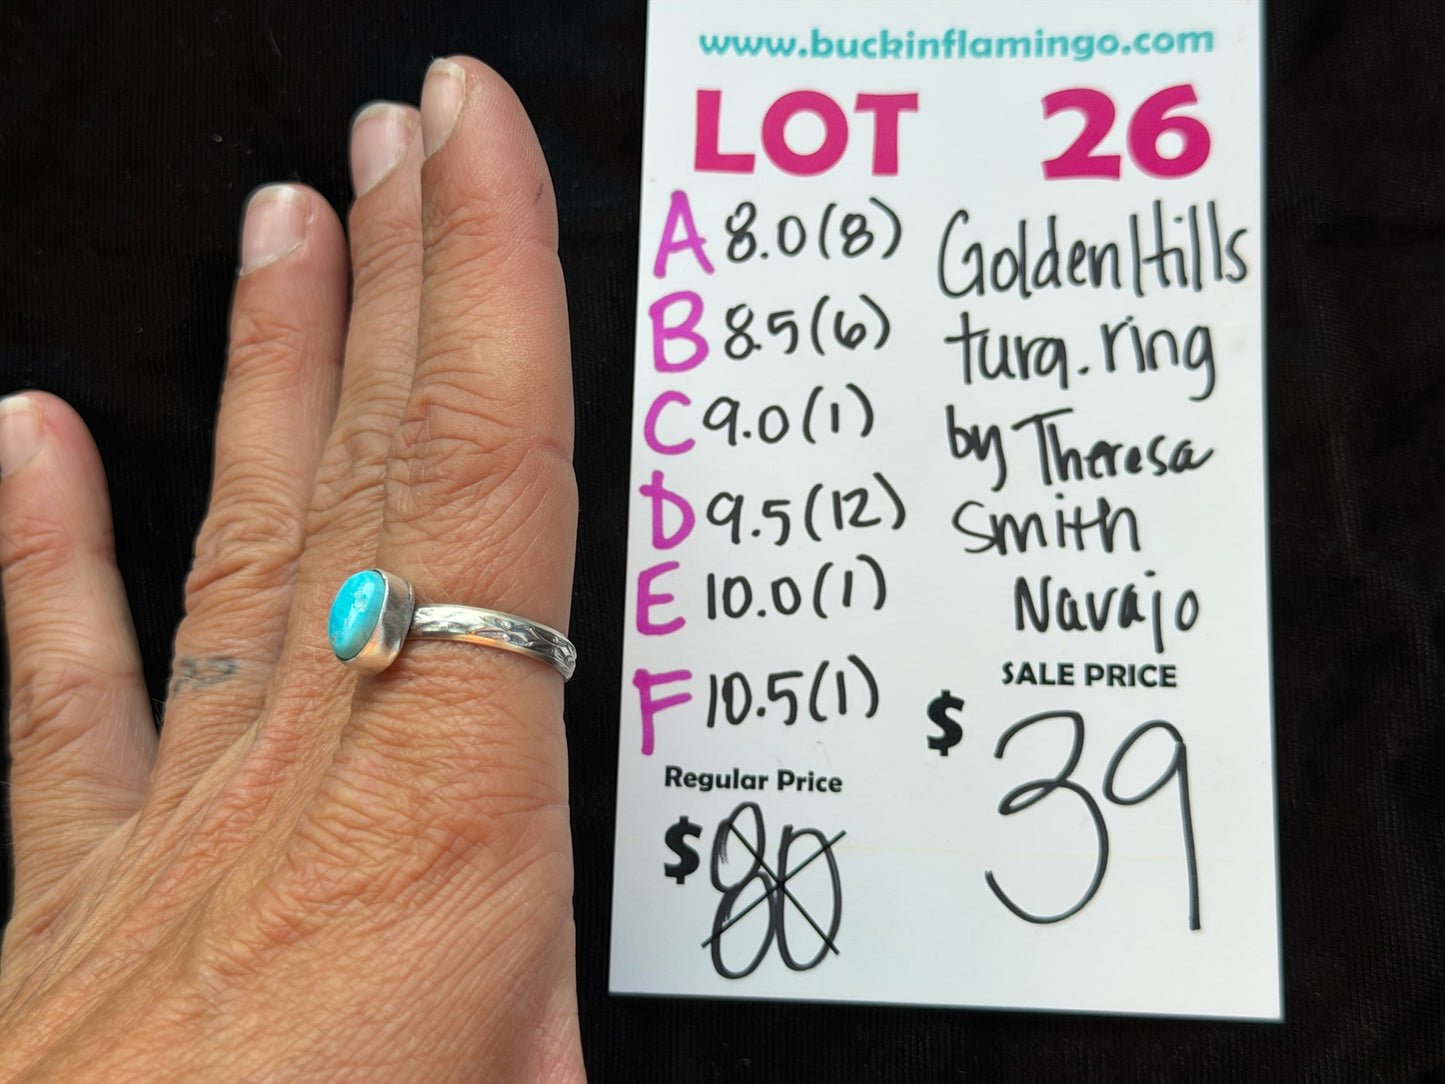 www.buckinflamingo.com
LOT 26
A 8.0 (8)
B 8.5 (6)
C 9.0 (1)
D 9.5 (12)
E 10.0 (1)
F 10.5 (1)
Golden Hills
turq. ring
by Theresa
Smith
Navajo
Regular Price
$80
SALE PRICE
$39